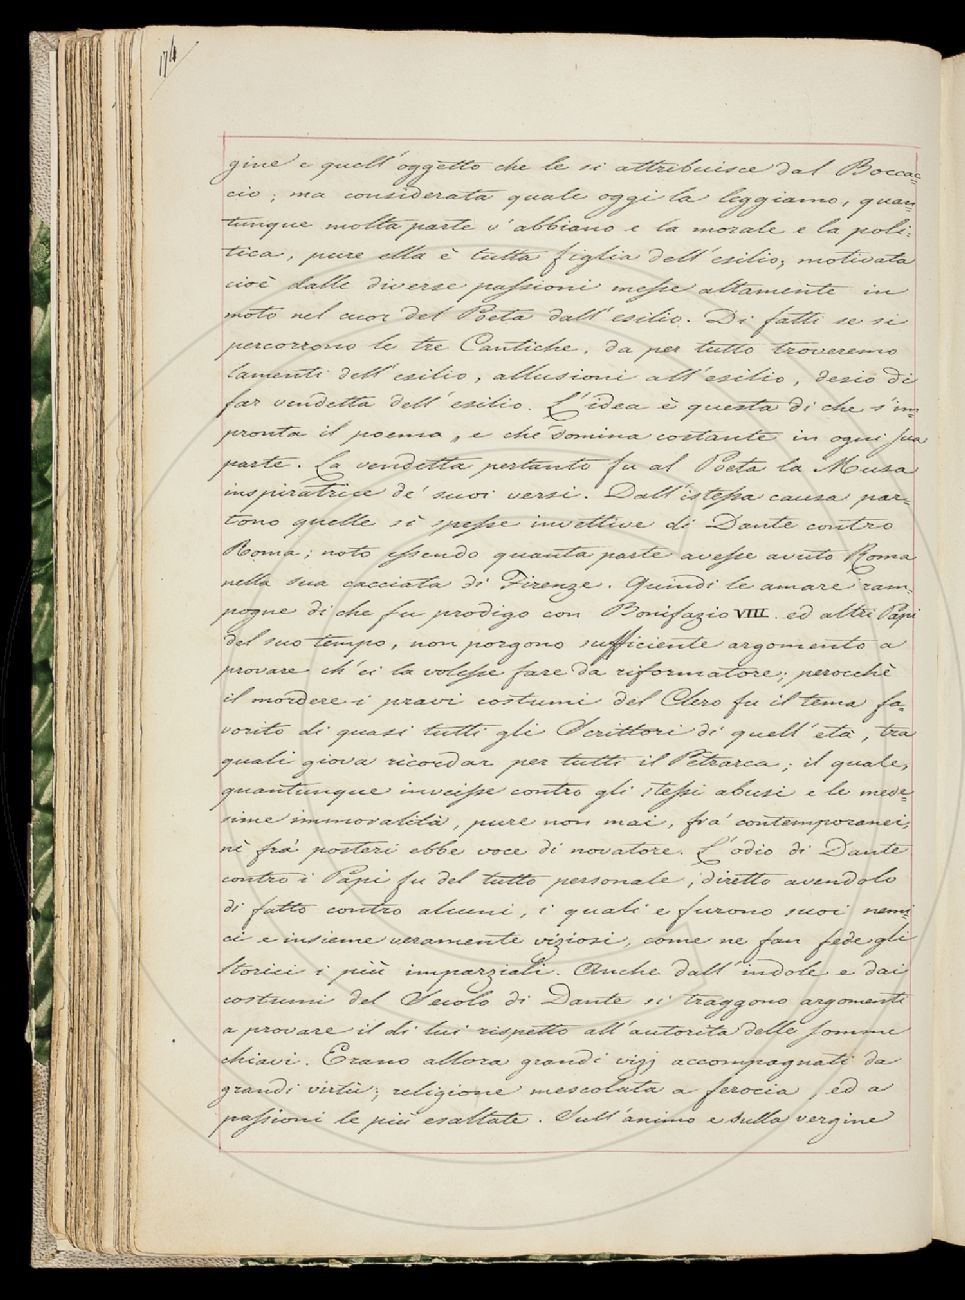 174
gine e quell'oggetto che le si attribuisce dal Boccac=
cio; ma considerata quale oggi la leggiamo, quan=
tunque molta parte v'abbiano e la morale e la poli=
tica, pure ella è tutta figlia dell'esilio, motivata
cioè dalle diverse passioni messe altamente in
moto nel cuor del Poeta dall'esilio. Di fatti se si
percorrono le tre Cantiche, da per tutto troveremo
lamenti dell'esilio, allusioni all'esilio, desio di
far vendetta dell'esilio. L'idea è questa di che s'im=
pronta il poema, e che domina costante in ogni sua
parte. La vendetta pertanto fu al Poeta la Musa
inspiratrice de' suoi versi. Dall'istessa causa par=
tono quelle sì spesse invettive di Dante contro
Roma; noto essendo quanta parte avesse avuto Roma
nella sua cacciata di Firenze. Quindi le amare ram=
pogne di che fu prodigo con Bonifazio VIII. ed altri Papi
del suo tempo, non porgono sufficiente argomento a
provare ch'ei la volesse fare da riformatore; perocchè
il mordere i pravi costumi del Clero fu il tema fa=
vorito di quasi tutti gli Scrittori di quell'età, tra
quali giova ricordar per tutti il Petrarca; il quale,
quantunque inveisse contro gli stessi abusi e le mede=
sime immoralità, pure non mai, fra' contemporanei,
nè fra' posteri ebbe voce di novatore. L'odio di Dante
contro i Papi fu del tutto personale, diretto avendolo
di fatto contro alcuni, i quali e furono suoi nemi=
ci e insieme veramente viziosi, come ne fan fede gli
Storici i più imparziali. Anche dall'indole e dai
costumi del Secolo di Dante si traggono argomenti
a provare il di lui rispetto all'autorità delle somme
chiavi. Erano allora grandi vizj accompagnati da
grandi virtù; religione mescolata a ferocia, ed a
passioni le più esaltate. Sull'animo e sulla vergine